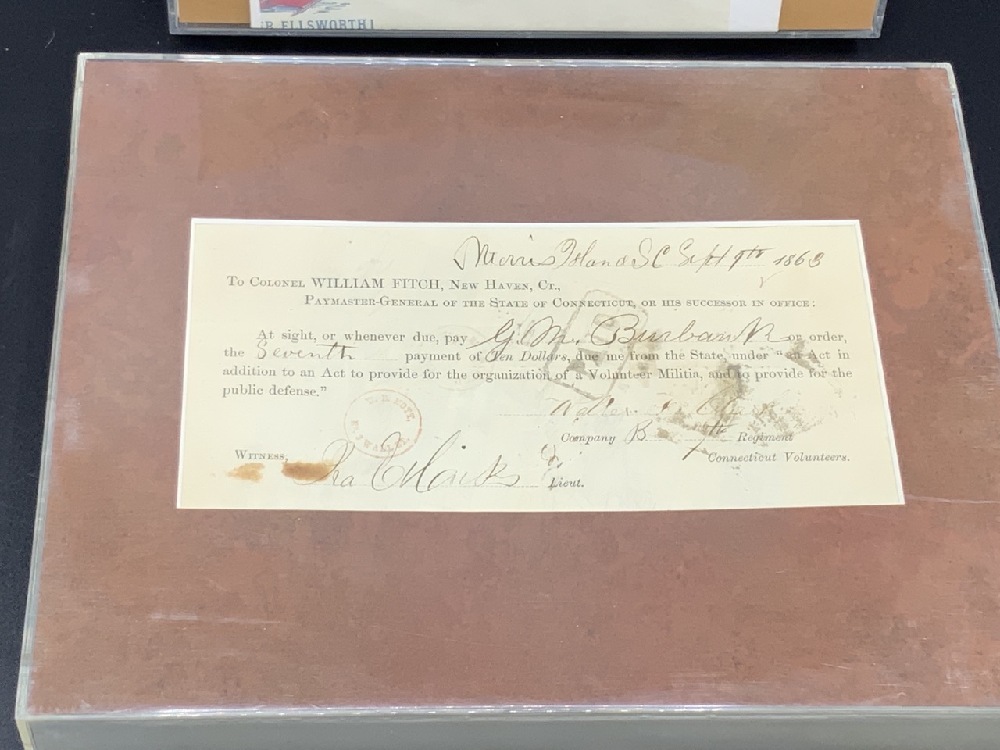 R ELLSWORTH!
Morris Island SC Sept 9th 1863
To Colonel WILLIAM FITCH, New Haven, Ct.,
Paymaster-General of the State of Connecticut, or his successor in office:
At sight, or whenever due, pay G. M. Burbank or order,
the Seventh payment of Ten Dollars, due me from the State, under "an Act in
addition to an Act to provide for the organization of a Volunteer Militia, and to provide for the
public defense."
Company B 7th Regiment
Witness, Ira E. Hicks Lieut. Connecticut Volunteers.